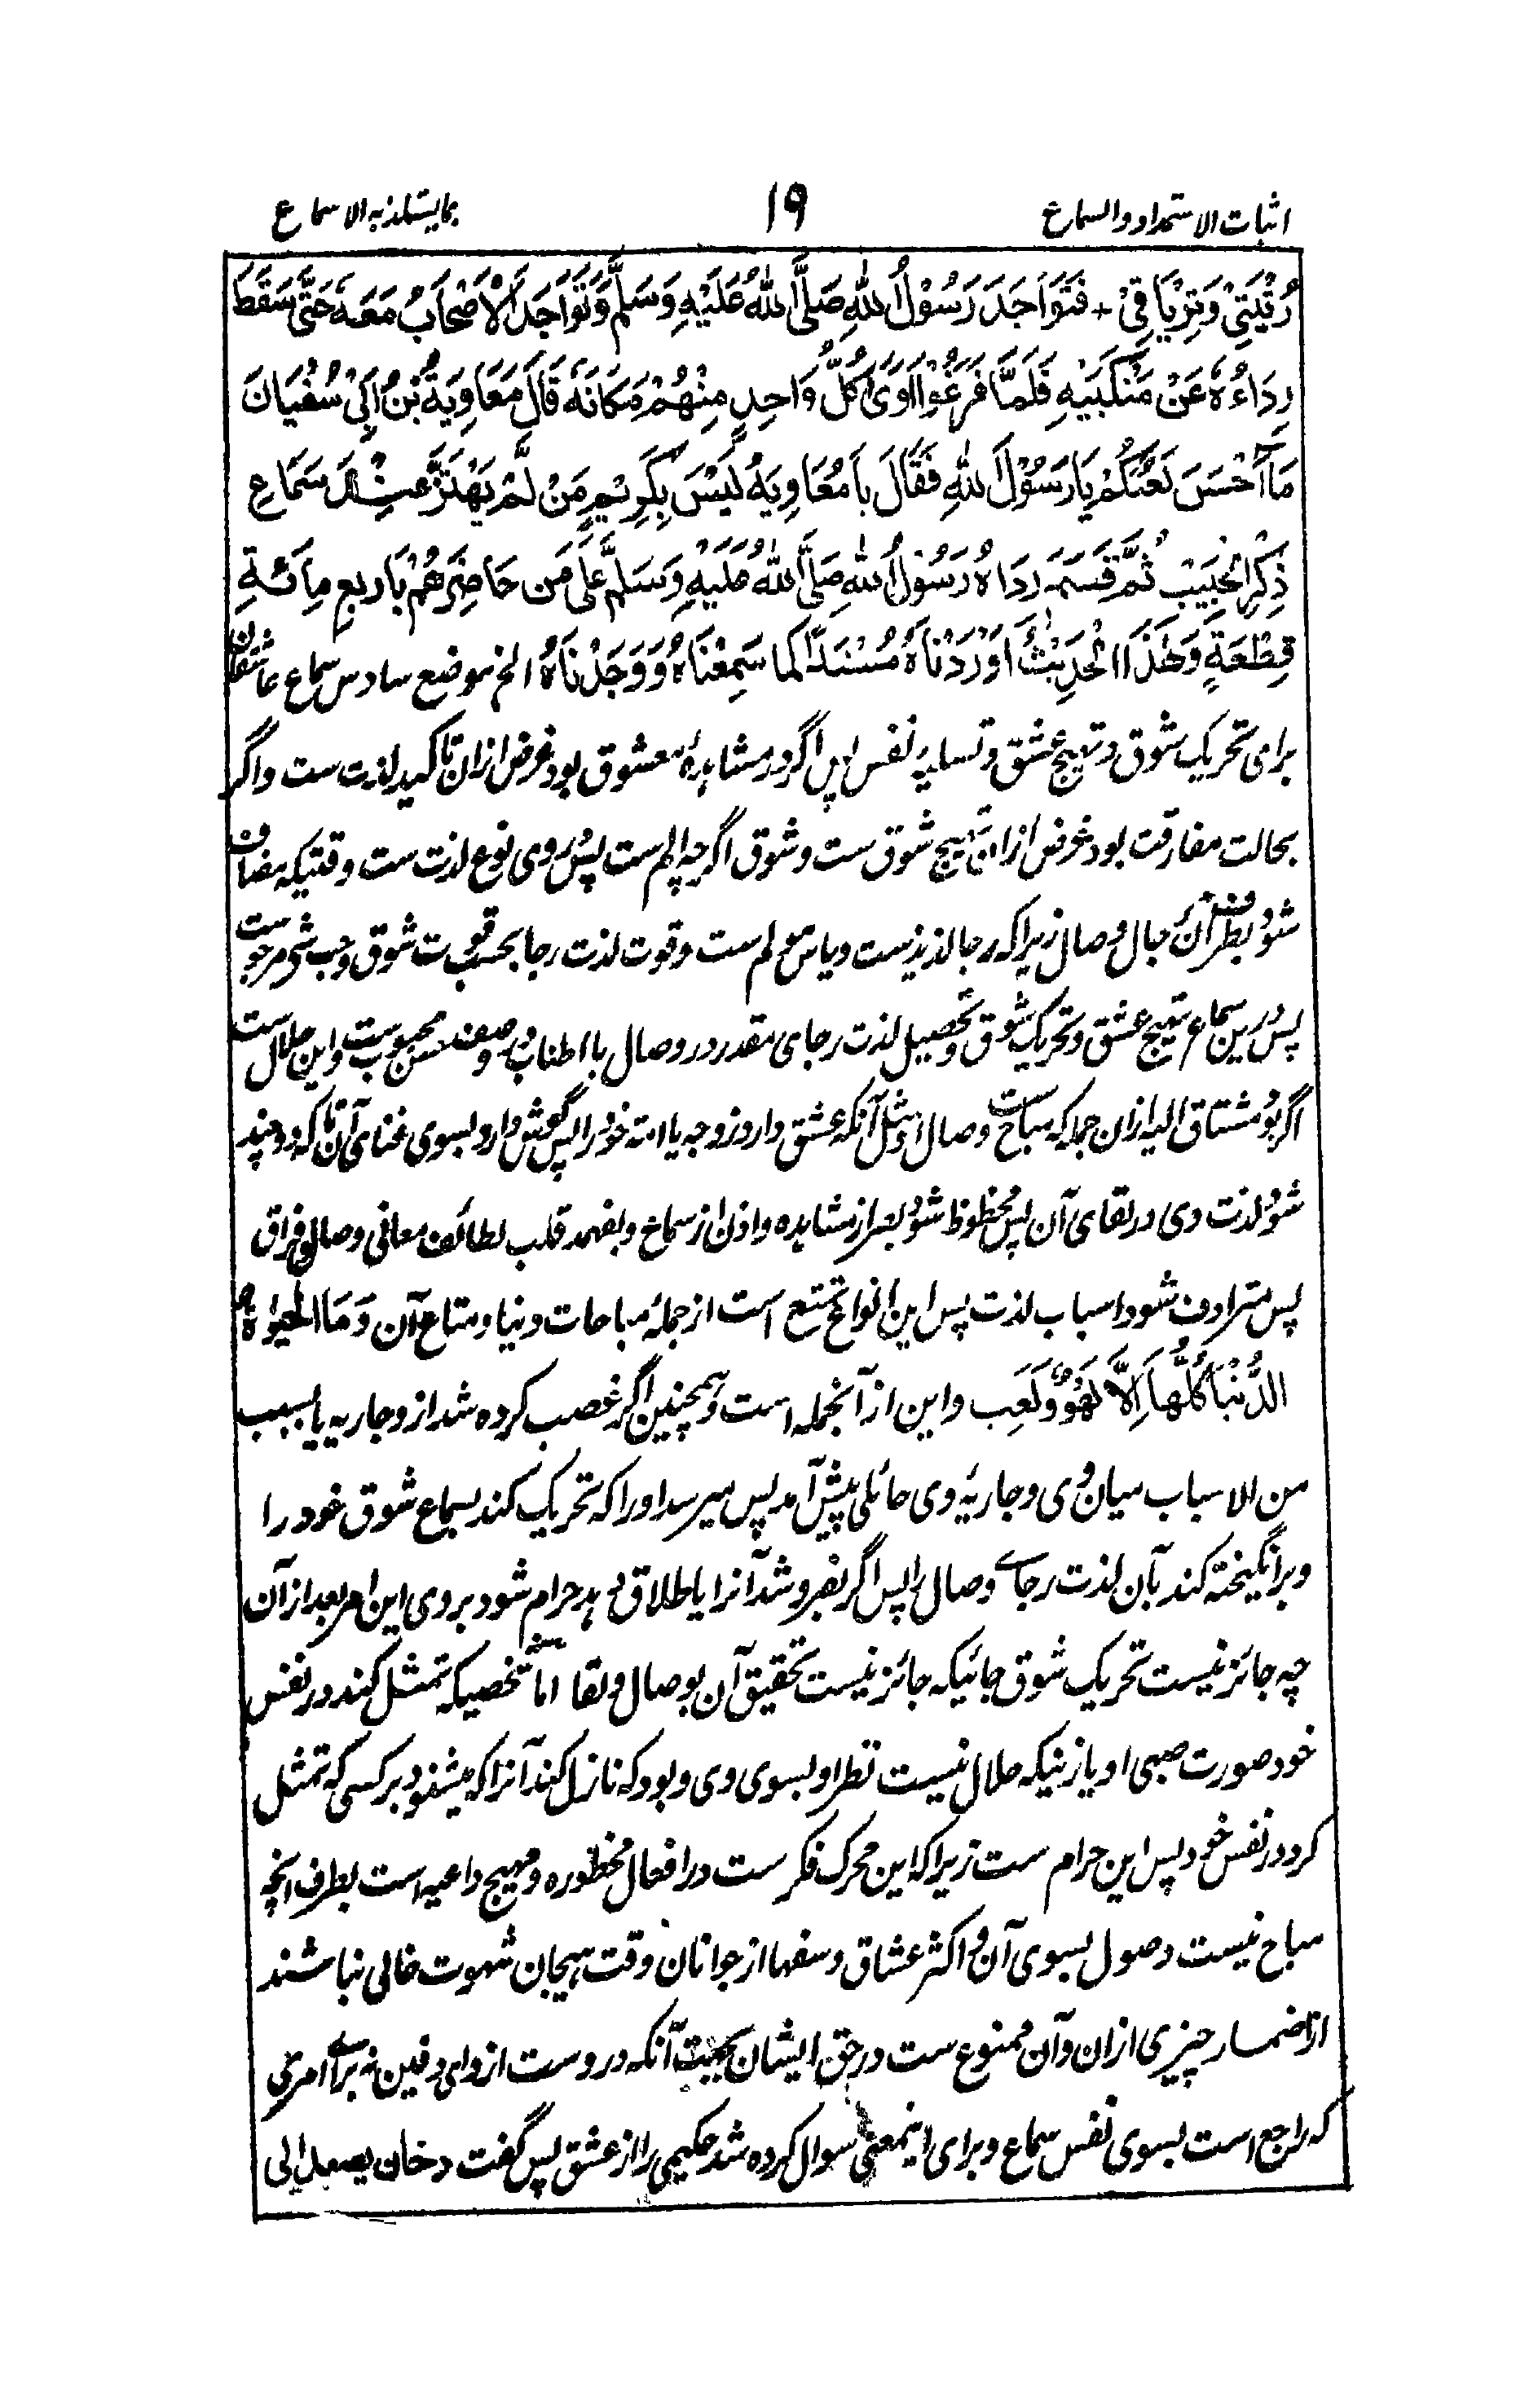 اثبات الاستمداد والسماع ۱۹ بما یستلذ به الاسماع
رُقْيَتِيْ وَتِرْيَاقِيْ + فَتَوَاجَدَ رَسُوْلُ اللهِ صَلَّى اللهُ عَلَيْهِ وَسَلَّمَ وَتَوَاجَدَ الْاَصْحَابُ مَعَهٗ حَتّٰى سَقَطَ
رِدَاءُهٗ عَنْ مَنْكَبَيْهِ فَلَمَّا فَرَغُوْا اَوٰى كُلُّ وَاحِدٍ مِنْهُمْ مَكَانَهٗ قَالَ مَعَاوِيَةُ بْنُ اَبِيْ سُفْيَانَ
مَا اَحْسَنَ لَعْبُكُمْ يَا رَسُوْلَ اللهِ فَقَالَ يا مُعَاوِيَهُ لَيْسَ بِكَرِيْمٍ مَنْ لَّمْ يَهْتَزَّ عِنْدَ سَمَاعِ
ذِكْرِ الْحَبِيْبِ ثُمَّ قَسَمَ رِدَاهُ رَسُوْلُ اللهِ صَلَّى اللهُ عَلَيْهِ وَسَلَّمَ عَلٰى مَن حَاضِرَهُمْ بِاَربعِ مِائَةِ
قِطْعَةٍ وَهٰذَا الْحَدِيْثُ اَوْرَدْنَاهُ مُسْنَدًا كما سَمِعْنَاهُ وَوَجَدْنَاهُ الخ موضع سادس سماع عاشقان
برای تحریک شوق و تهییج عشق و تسلیه نفس پس اگر در مشاهدهٔ معشوق بود غرض ازان تاکید لذت ست و اگر
بحالت مفارقت بود غرض ازان تهییج شوق ست و شوق اگرچه الم ست پس در وی نوع لذت ست وقتیکه مضاف
شود بطرف آن جمال وصال زیراکه رجا لذیذست و یاس مولم ست و قوت لذت رجا بحسب قوت شوق و حب شی مرجوست
پس درین سماع تهییج عشق و تحریک شوق و تحصیل لذت رجای مقدر در وصال با اطناب در وصف حسن محبوبست و این حلال ست
اگر بود مشتاق الیه ازان جمله که مباح ست وصال او مثل آنکه عشق دارد زوجه یا امته خود را پس گوش دارد بسوی غنای آن تا که دوچند
شود لذت وی در لقای آن پس محظوظ شود بصر از مشاهده و اذن از سماع و بفهمد قلب لطائف معانی وصال و فراق
پس مترادف شود اسباب لذت پس این انواع تمتع است از جملهٔ مباحات دنیا و متاع آن وَمَا الْحَيٰوةُ
الدُّنْيَا كُلُّهَا اِلَّا لَهْوٌ وَّلَعِب و این از آنجمله است و همچنین اگر غصب کرده شد از و جاریه یا بسبب
من الاسباب میان وی و جاریهٔ وی حائلی پیش آمد پس میرسد او را که تحریک کند بسماع شوق خود را
و برانگیخته کند بآن لذت رجای وصال را پس اگر بفروشد آنرا یا طلاق دهد حرام شود بروی این امر بعد از آن
چه جائز نیست تحریک شوق جائیکه جائز نیست تحقیق آن بوصال و لقا اما شخصیکه تمثل کند در نفس
خود صورت صبی او یا زنیکه حلال نیست نظر او بسوی وی و بود که نازل کند آنرا که میشنود برکسی که تمثل
کرد در نفس خود پس این حرام ست زیراکه این محرک فکرست در افعال محظوره و مهیج داعیه است بطرف انچه
مباح نیست وصول بسوی آن و اکثر عشاق و سفها از جوانان وقت هیجان شهوت خالی نباشند
از اضمار چیزی ازان و آن ممنوع ست در حق ایشان بجهت آنکه دروست از وای دفین نه برای امری
که راجع است بسوی نفس سماع و برای اینمعنی سوال کرده شد حکیمی را از عشق پس گفت دخان یصعد الی